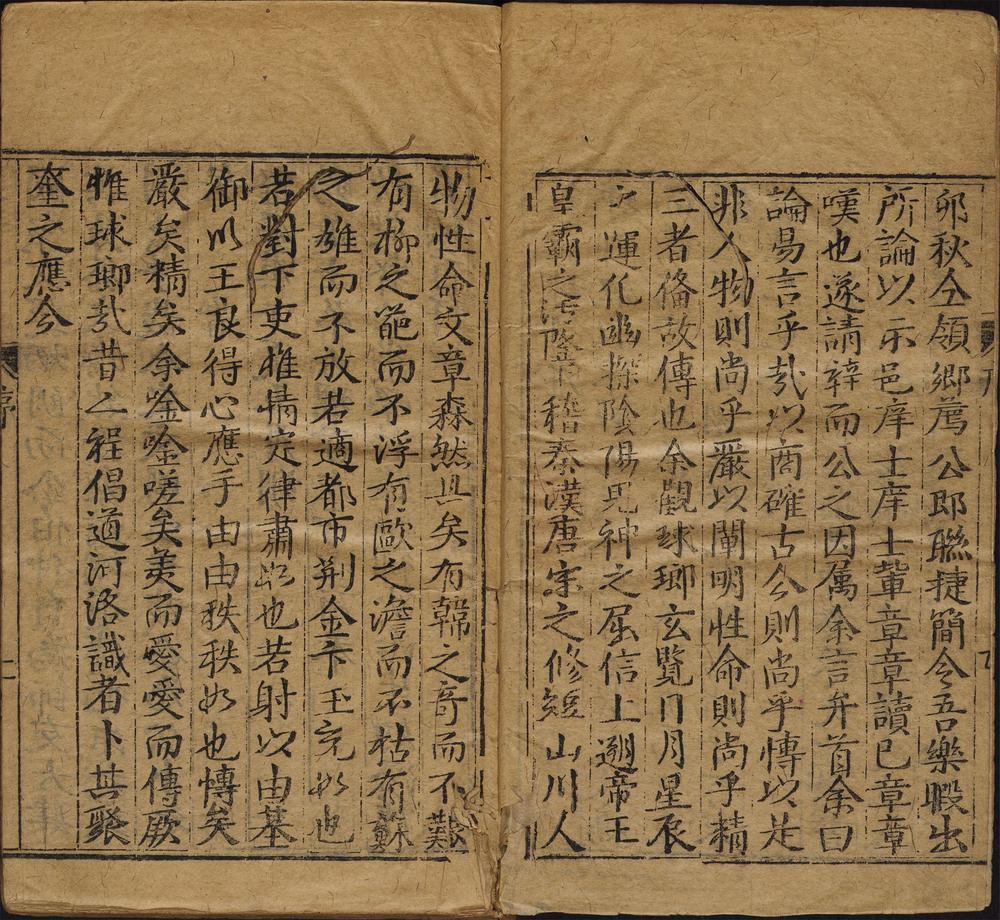 卯秋仝領鄉薦公即聯捷簡令吾樂暇出
所論以示邑庠士庠士軰章章讀已章章
嘆也遂請梓而公之因属余言弁首余曰
論昜言乎㢤以商確古今則尚乎慱以是
非人物則尚乎嚴以闡明性命則尚乎精
三者俻故傳也余觀球瑯玄覽日月星辰
之運化幽探陰陽鬼神之屈信上遡帝王
皇霸之汚隆下稽秦漢唐宗之修短山川人
物性命文章森然具矣有韓之竒而不艱
有柳之葩而不浮有歐之澹而不枯有蘇
之雄而不放若適都市荆金卞玉充如也
若對下吏惟情定律肅如也若射以由基
御以王良得心應手由由秩秩如也慱矣
嚴矣精矣余唫唫嗟矣羙而愛愛而傳厥
惟球瑯㢤昔之程倡道河洛識者卜其聚
奎之應今
序